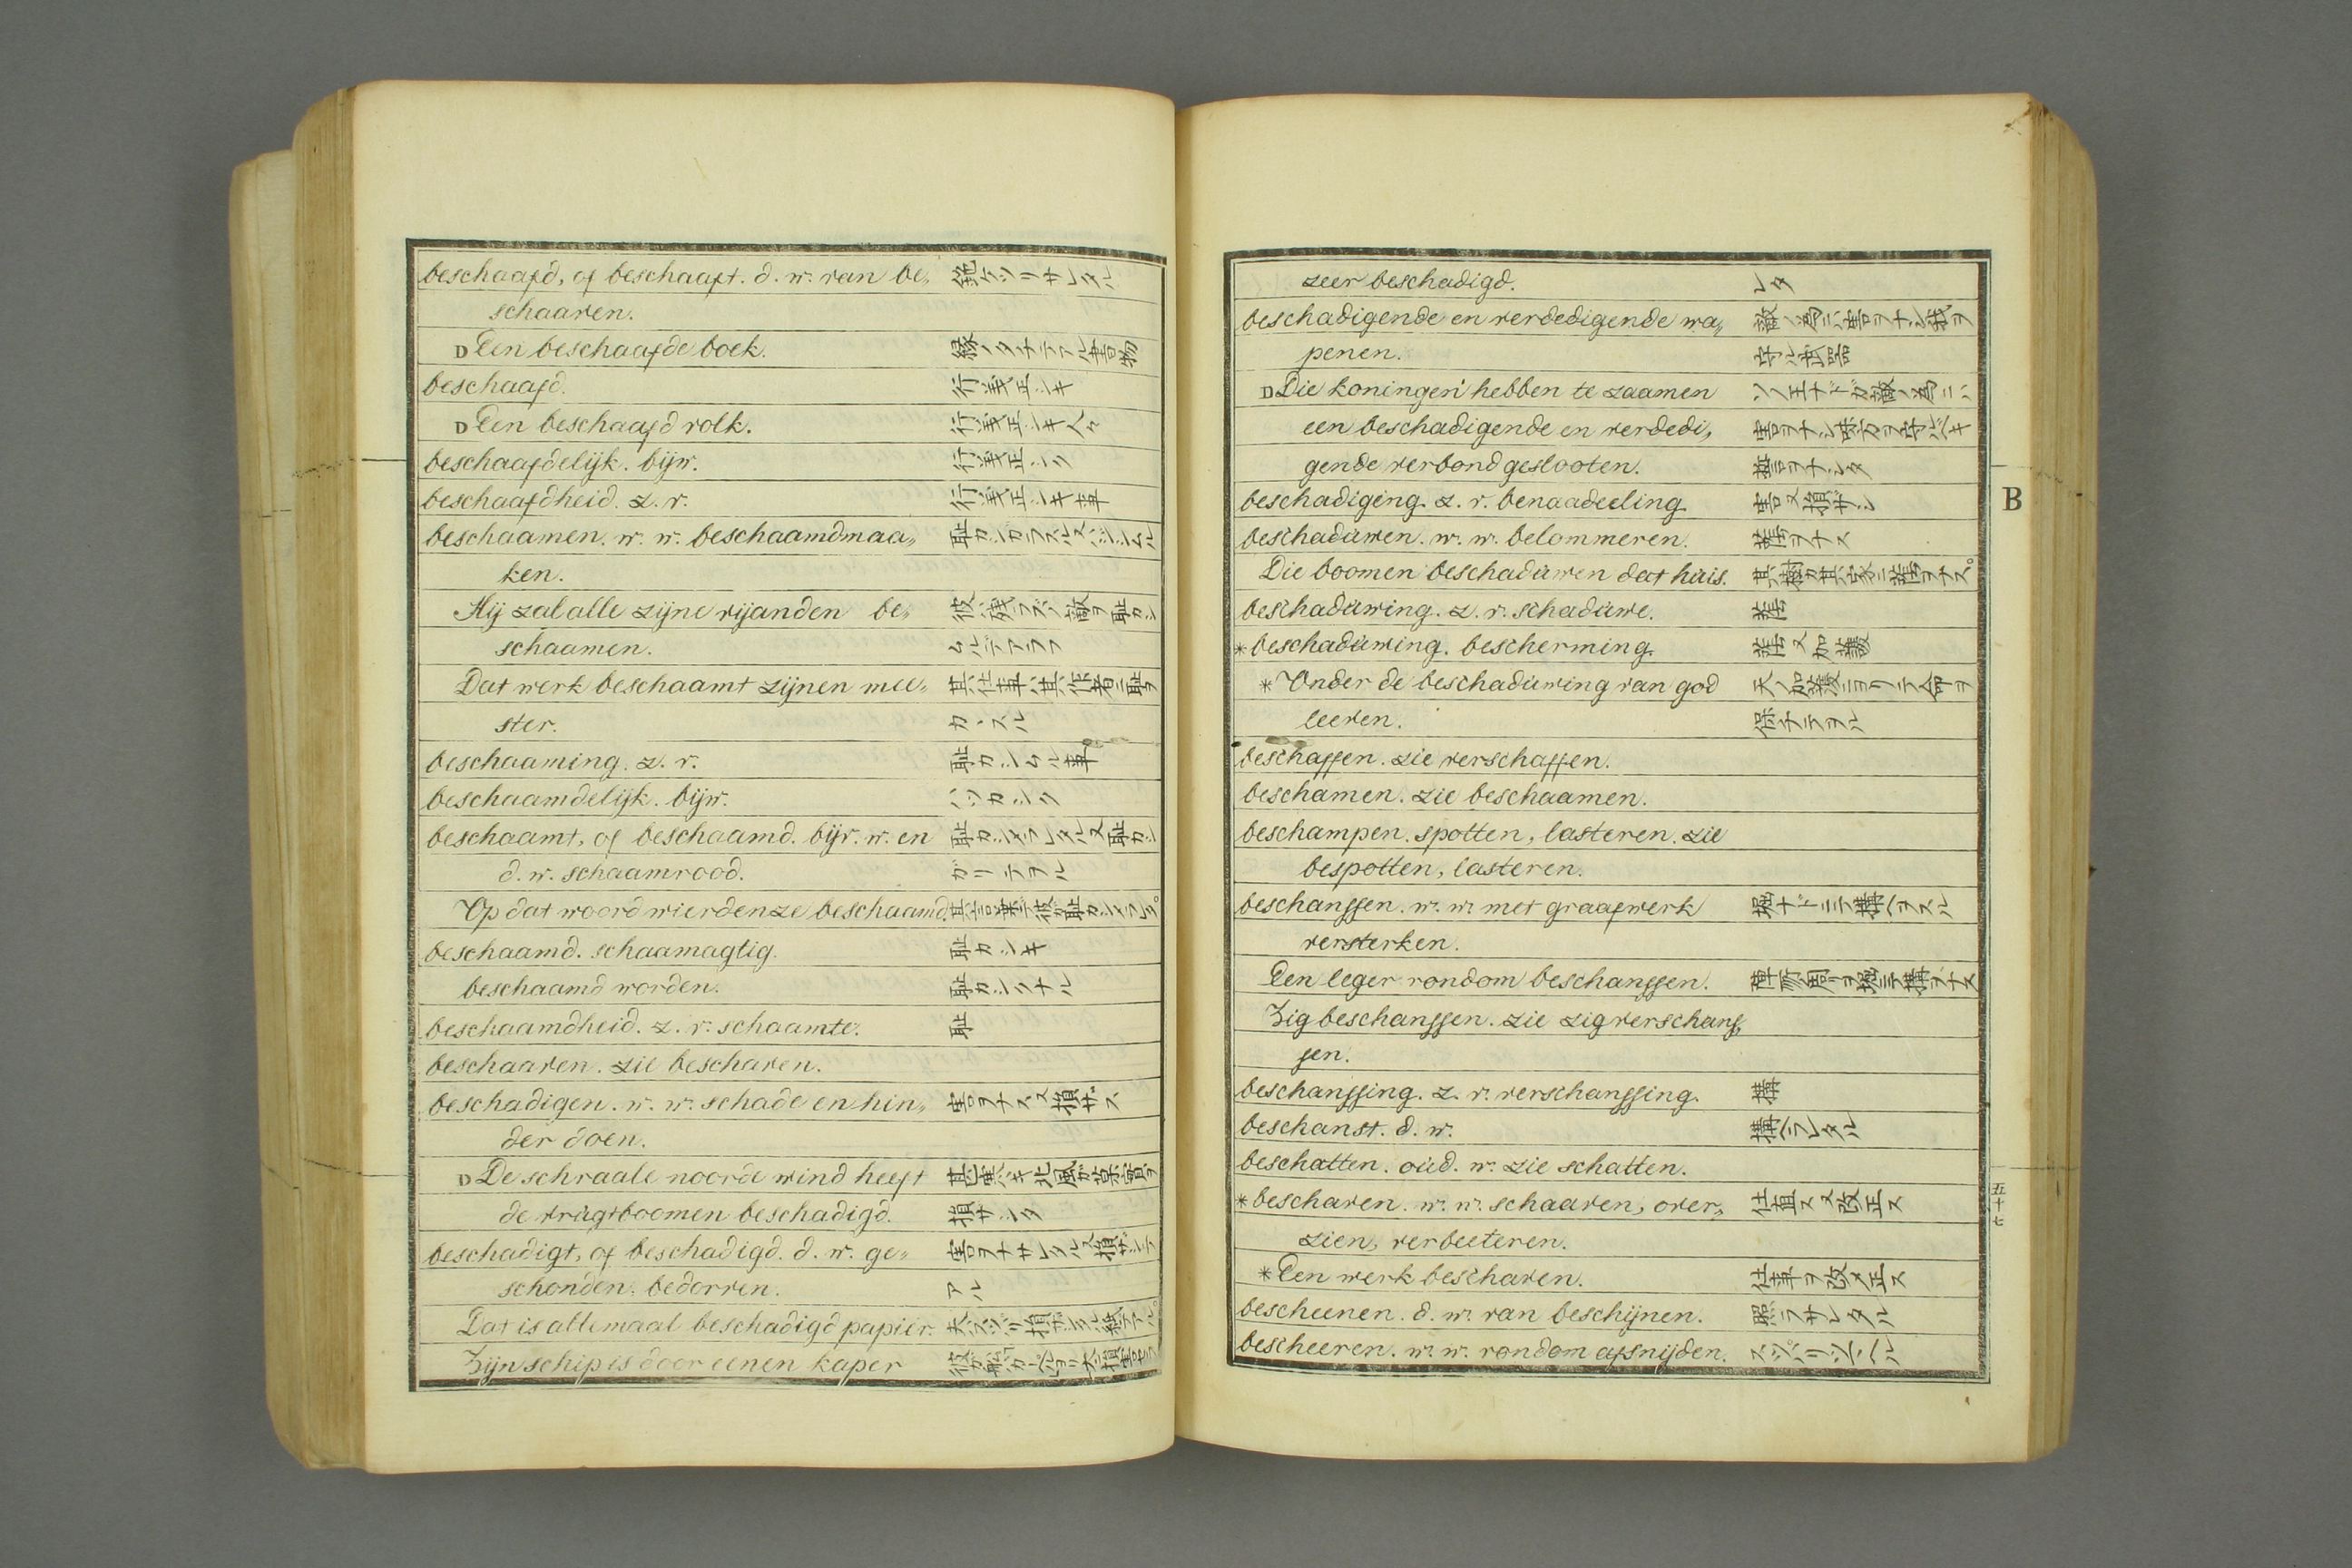 beschaafd, of beschaaft. d. w. van be„ 鉋ケヅリサレタル
schaaven.
D Een beschaafde boek. 縁ノタチテアル書物
beschaafd. 行義正シキ
D Een beschaafd volk. 行義正シキ人々
beschaafdelijk. bijw. 行義正シク
beschaafdheid. z. v. 行義正シキ事
beschaamen. w. w. beschaamdmaa„
ken.
Hij zal alle zijne vijanden be„
schaamen.
Dat werk beschaamt zijnen mee„
ster. カヽスル
beschaaming. z. v. 恥カシムル事
beschaamdelijk. bijw. ハヅカシク
beschaamt, of beschaamd. bijv. w. en
d. w. schaamrood. ガリテヲル
Op dat woord wierden ze beschaamd.
beschaamd. schaamagtig. 恥カシキ
beschaamd worden. 恥カシクナル
beschaamdheid. z. v. schaamte. 恥
beschaaven. zie beschaven.
beschadigen. w. w. schade en hin„ 害ヲナス又損サス
der doen.
D De schraale noorde wind heeft
de vrugtboomen beschadigd. 損サシタ
beschadigt, of beschadigd. d. w. ge„ 害ヲナサレタル又損ザシテ
schonden, bedorven. アル
Dat is allemaal beschadigd papier.
Zijn schip is door eenen kaper
zeer beschadigd. レタ
beschadigende en verdedigende wa„ 敵ノ為ニハ害ヲナシ我ヲ
penen. 守ル武器
D Die koningen hebben te zaamen ソノ王ナドガ敵ノ為ニハ
een beschadigende en verdedi„ 害ヲナシ味方ヲ守ルベキ
gende verbond geslooten. 誓ヲナシタ
beschadiging. z. v. benaadeeling. 害又損ザシ
beschaduwen. w. w. belommeren. 蔭ヲナス
Die boomen beschaduwen dat huis. 其樹ガ其家ニ蔭ヲナス。
beschaduwing. z. v. schaduwe. 蔭
* beschaduwing. bescherming. 蔭又加護
* Onder de beschaduwing van god 天ノ加護ニヨリテ命ヲ
leeven. 保チテヲル
beschaffen. zie verschaffen.
beschamen. zie beschaamen.
beschampen. spotten, lasteren. zie
bespotten, lasteren.
beschanssen. w. w. met graafwerk 堀ナドニテ構ヘヲスル
versterken.
Een leger rondom beschanssen. 陣所ノ周リヲ堀ニテ構ヲナス
Zig beschanssen. zie zig verschans„
sen.
beschanssing. z. v. verschanssing. 構
beschanst. d. w. 構ヘラレタル
beschatten. oud. w. zie schatten.
* beschaven. w. w. schaaven, over„ 仕直ス又改正ス
zien, verbeeteren.
* Een werk beschaven. 仕事ヲ改メ正ス
bescheenen. d. w. van beschijnen. 照ラサレタル
bescheeren. w. w. rondom afsnijden.
B
五十七